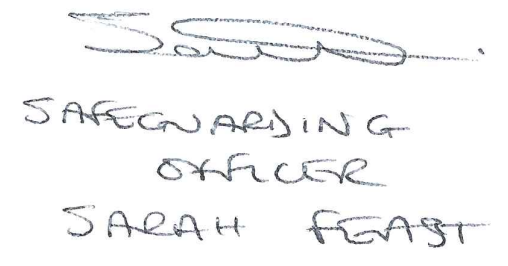 SAFEGUARDING
OFFICER
SARAH FEAST